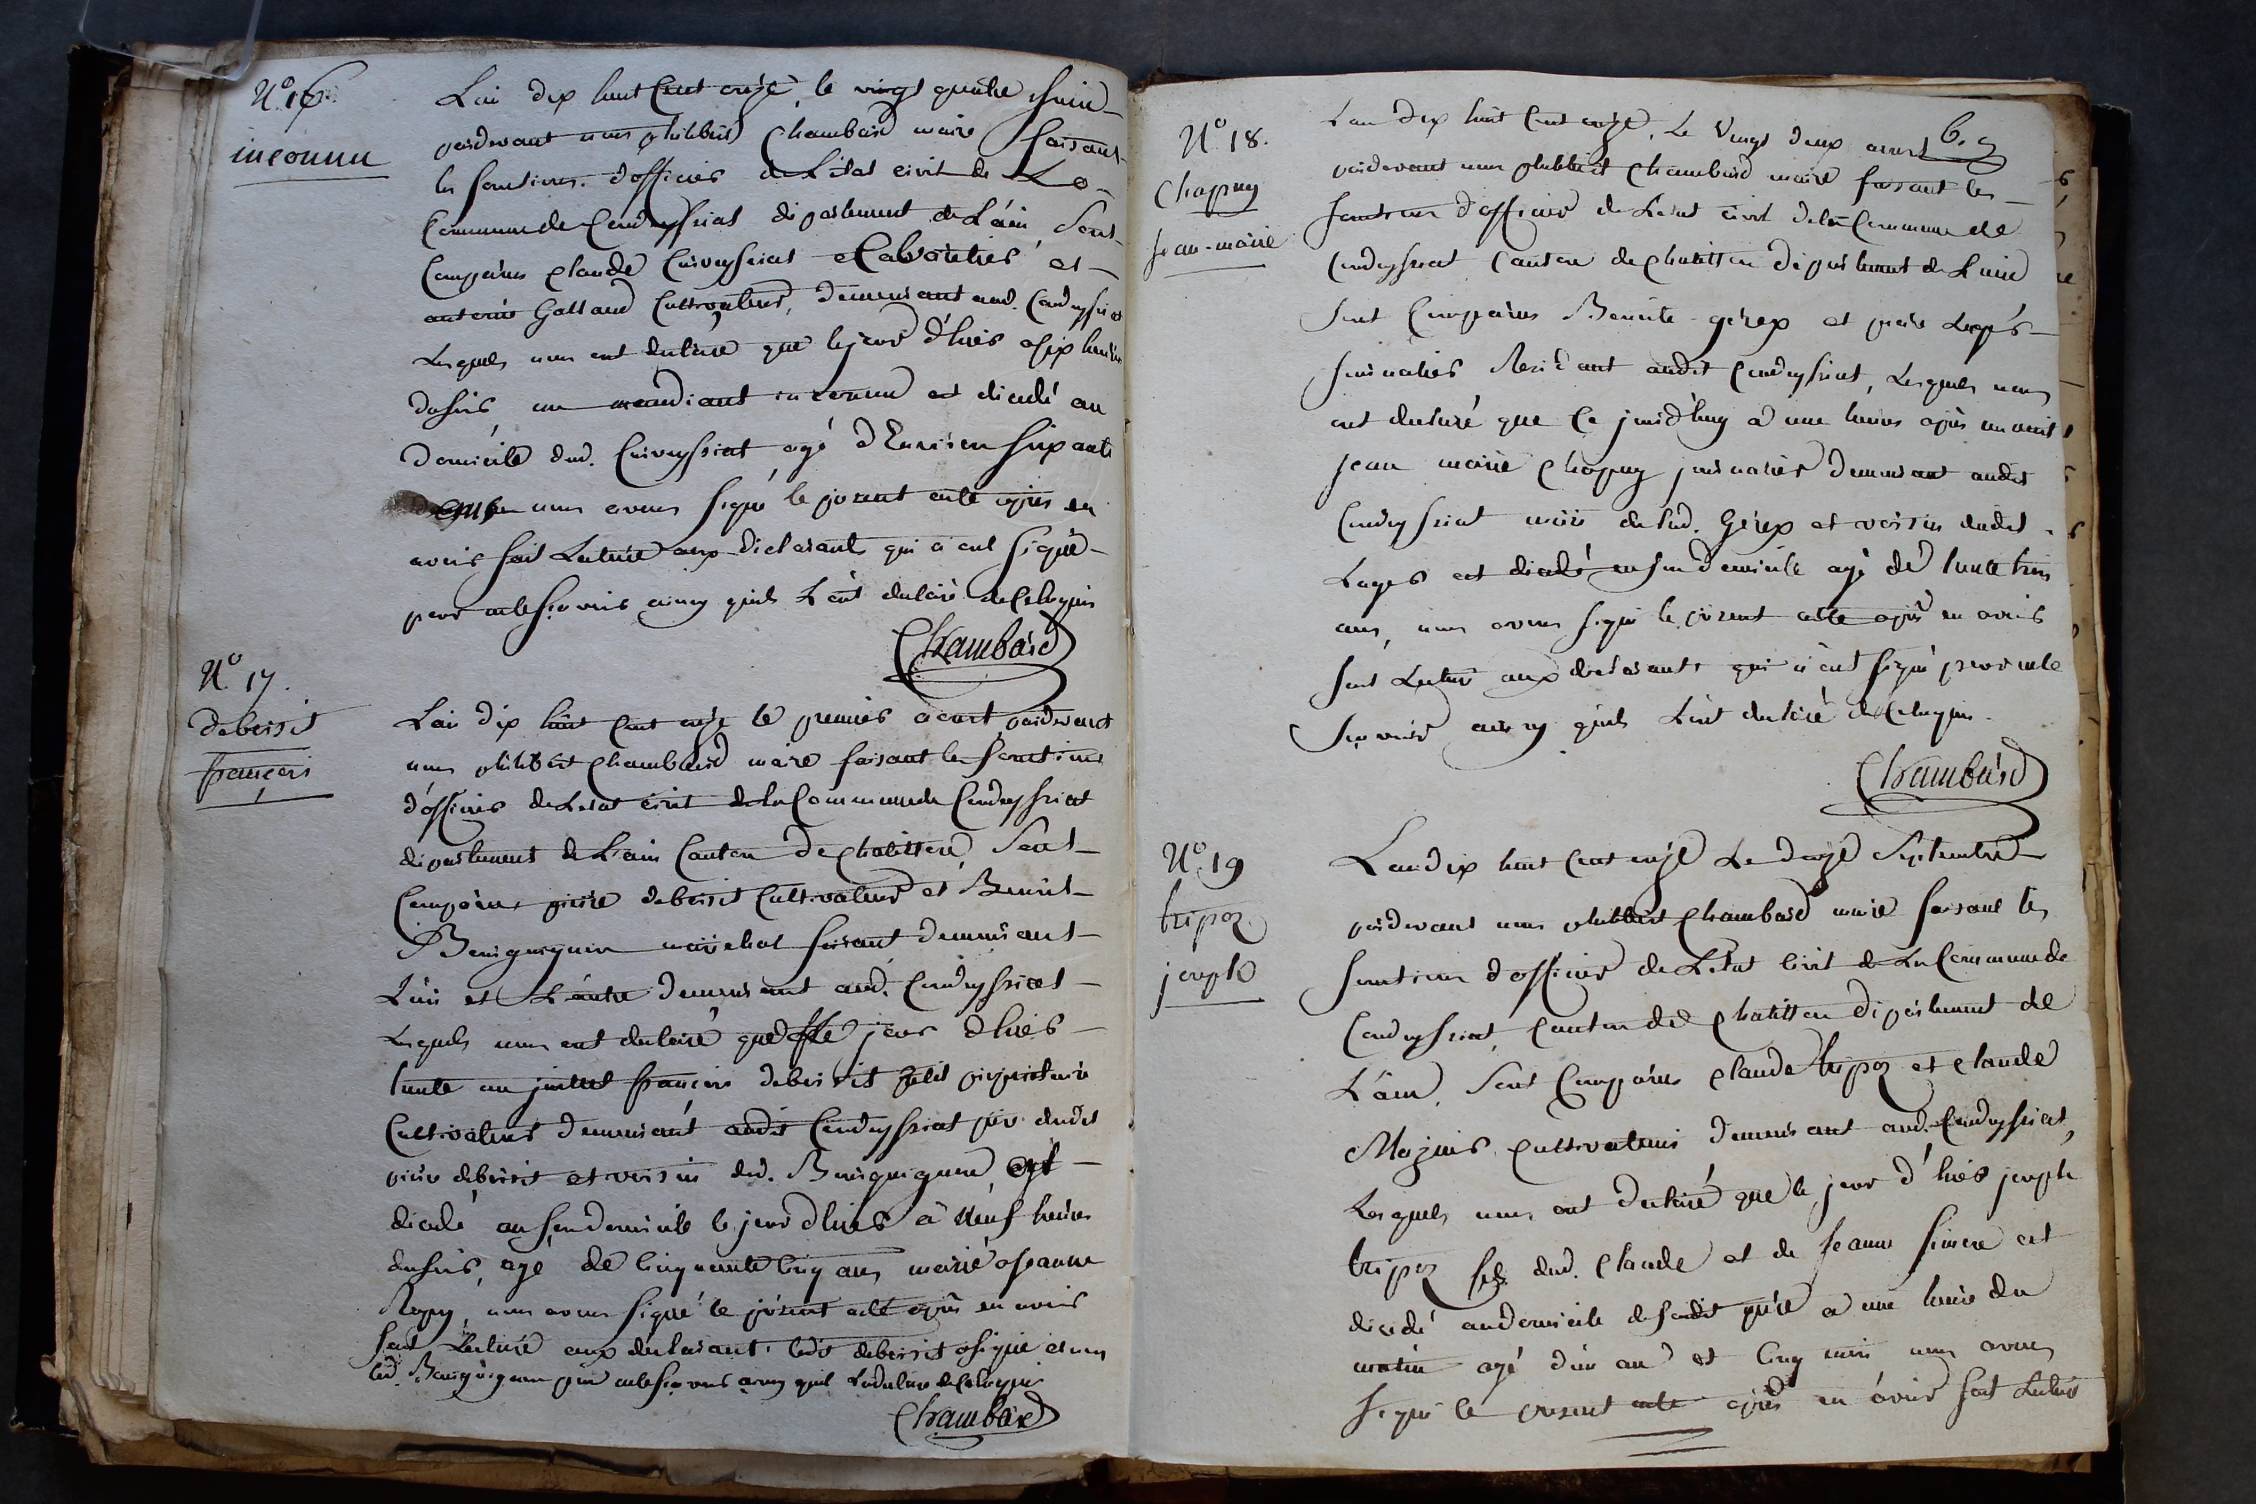 N.o 16
inconnu
L'an dix huit Cent onze, le vingt quatre Juin
pardevant nous philibert Chambard maire faisant
les fonctions d'officier de L'état civil de La
Commune de Condeyssiat département de L'ain, Sont
Comparus Claude Cuiveyssiat Cabaretier et
antoine Galland Cultivateur, demeurant aud. Condeyssiat
Lesquels nous ont declaré que le jour d'hier a six heures
du soir un mendiant inconnu est decedé au
domicile dud. Cuiveyssiat agé d'Environ soixante
ans nous avons signé le present acte après en
avoir fait Lecture aux declarants qui n'ont signé
pour ne le sçavoir ainsy qu'ils L'ont declaré de Ce Requis
Chambard
N.o 17.
debessit
françois
L'an dix huit Cent onze le premier aout pardevant
nous philibert Chambard maire faisant les fonctions
d'officier de L'etat civil de la Commune de Condeyssiat
département de L'ain Canton de Chatillon, Sont
Comparus pierre debessit Cultivateur et Benoit
marechal ferrant demeurant
L'un et L'autre demeurant aud. Condeyssiat
Lesquels nous ont declaré que le jour d'hier
trente un juillet françois debessit petit propriétaire
Cultivateur demeurant audit Condeyssiat père dudit
pierre debessit et voisin dud. est
decedé en son domicile le jour d'hier à neuf heures
du soir, agé de Cinquante Cinq ans, marié a jeanne
nous avons signé le present acte après en avoir
fait Lecture aux declarants ledit debessit a signé et non
led. pour ne le sçavoir ainsy qu'il L'a declaré de Ce Requis
Chambard
6.
N.o 18.
Chapuy
jean-marie
L'an dix huit Cent onze, Le Vingt deux aoust
pardevant nous philibert Chambard maire faisant les
fonctions d'officier de L'etat civil de la Commune de
Condeyssiat Canton de Chatillon département de L'ain
Sont Comparus Benoite gerex et pierre Lagés
journalier Residant audit Condeyssiat, Lesquels nous
ont declaré que Ce jourd'huy à une heure après minuit
jean marie Chapuy journalier demeurant audit
Condeyssiat mari de lad. Gerex et voisin dudit
Lages est decedé en son domicile agé de trente trois
ans, nous avons signé le present acte après en avoir
fait Lecture aux declarants qui n'ont signé pour ne le
sçavoir ainsy qu'ils L'ont declaré de Ce Requis.
Chambard
N.o 19
tripoz
joseph
L'an dix huit Cent onze Le douze Septembre
pardevant nous philibert Chambard maire faisant les
fonctions d'officier de L'Etat Civil de La Commune de
Condeyssiat, Canton de Chatillon département de
L'ain, Sont Comparus Claude tripoz et Claude
Cultivateurs demeurant aud. Condeyssiat,
Lesquels nous ont declaré que le jour d'hier joseph
tripoz fils dud. Claude et de jeanne est
decedé au domicile de sondit père a une heure du
matin agé d'un an et Cinq mois nous avons
signé le present acte après en avoir fait Lecture